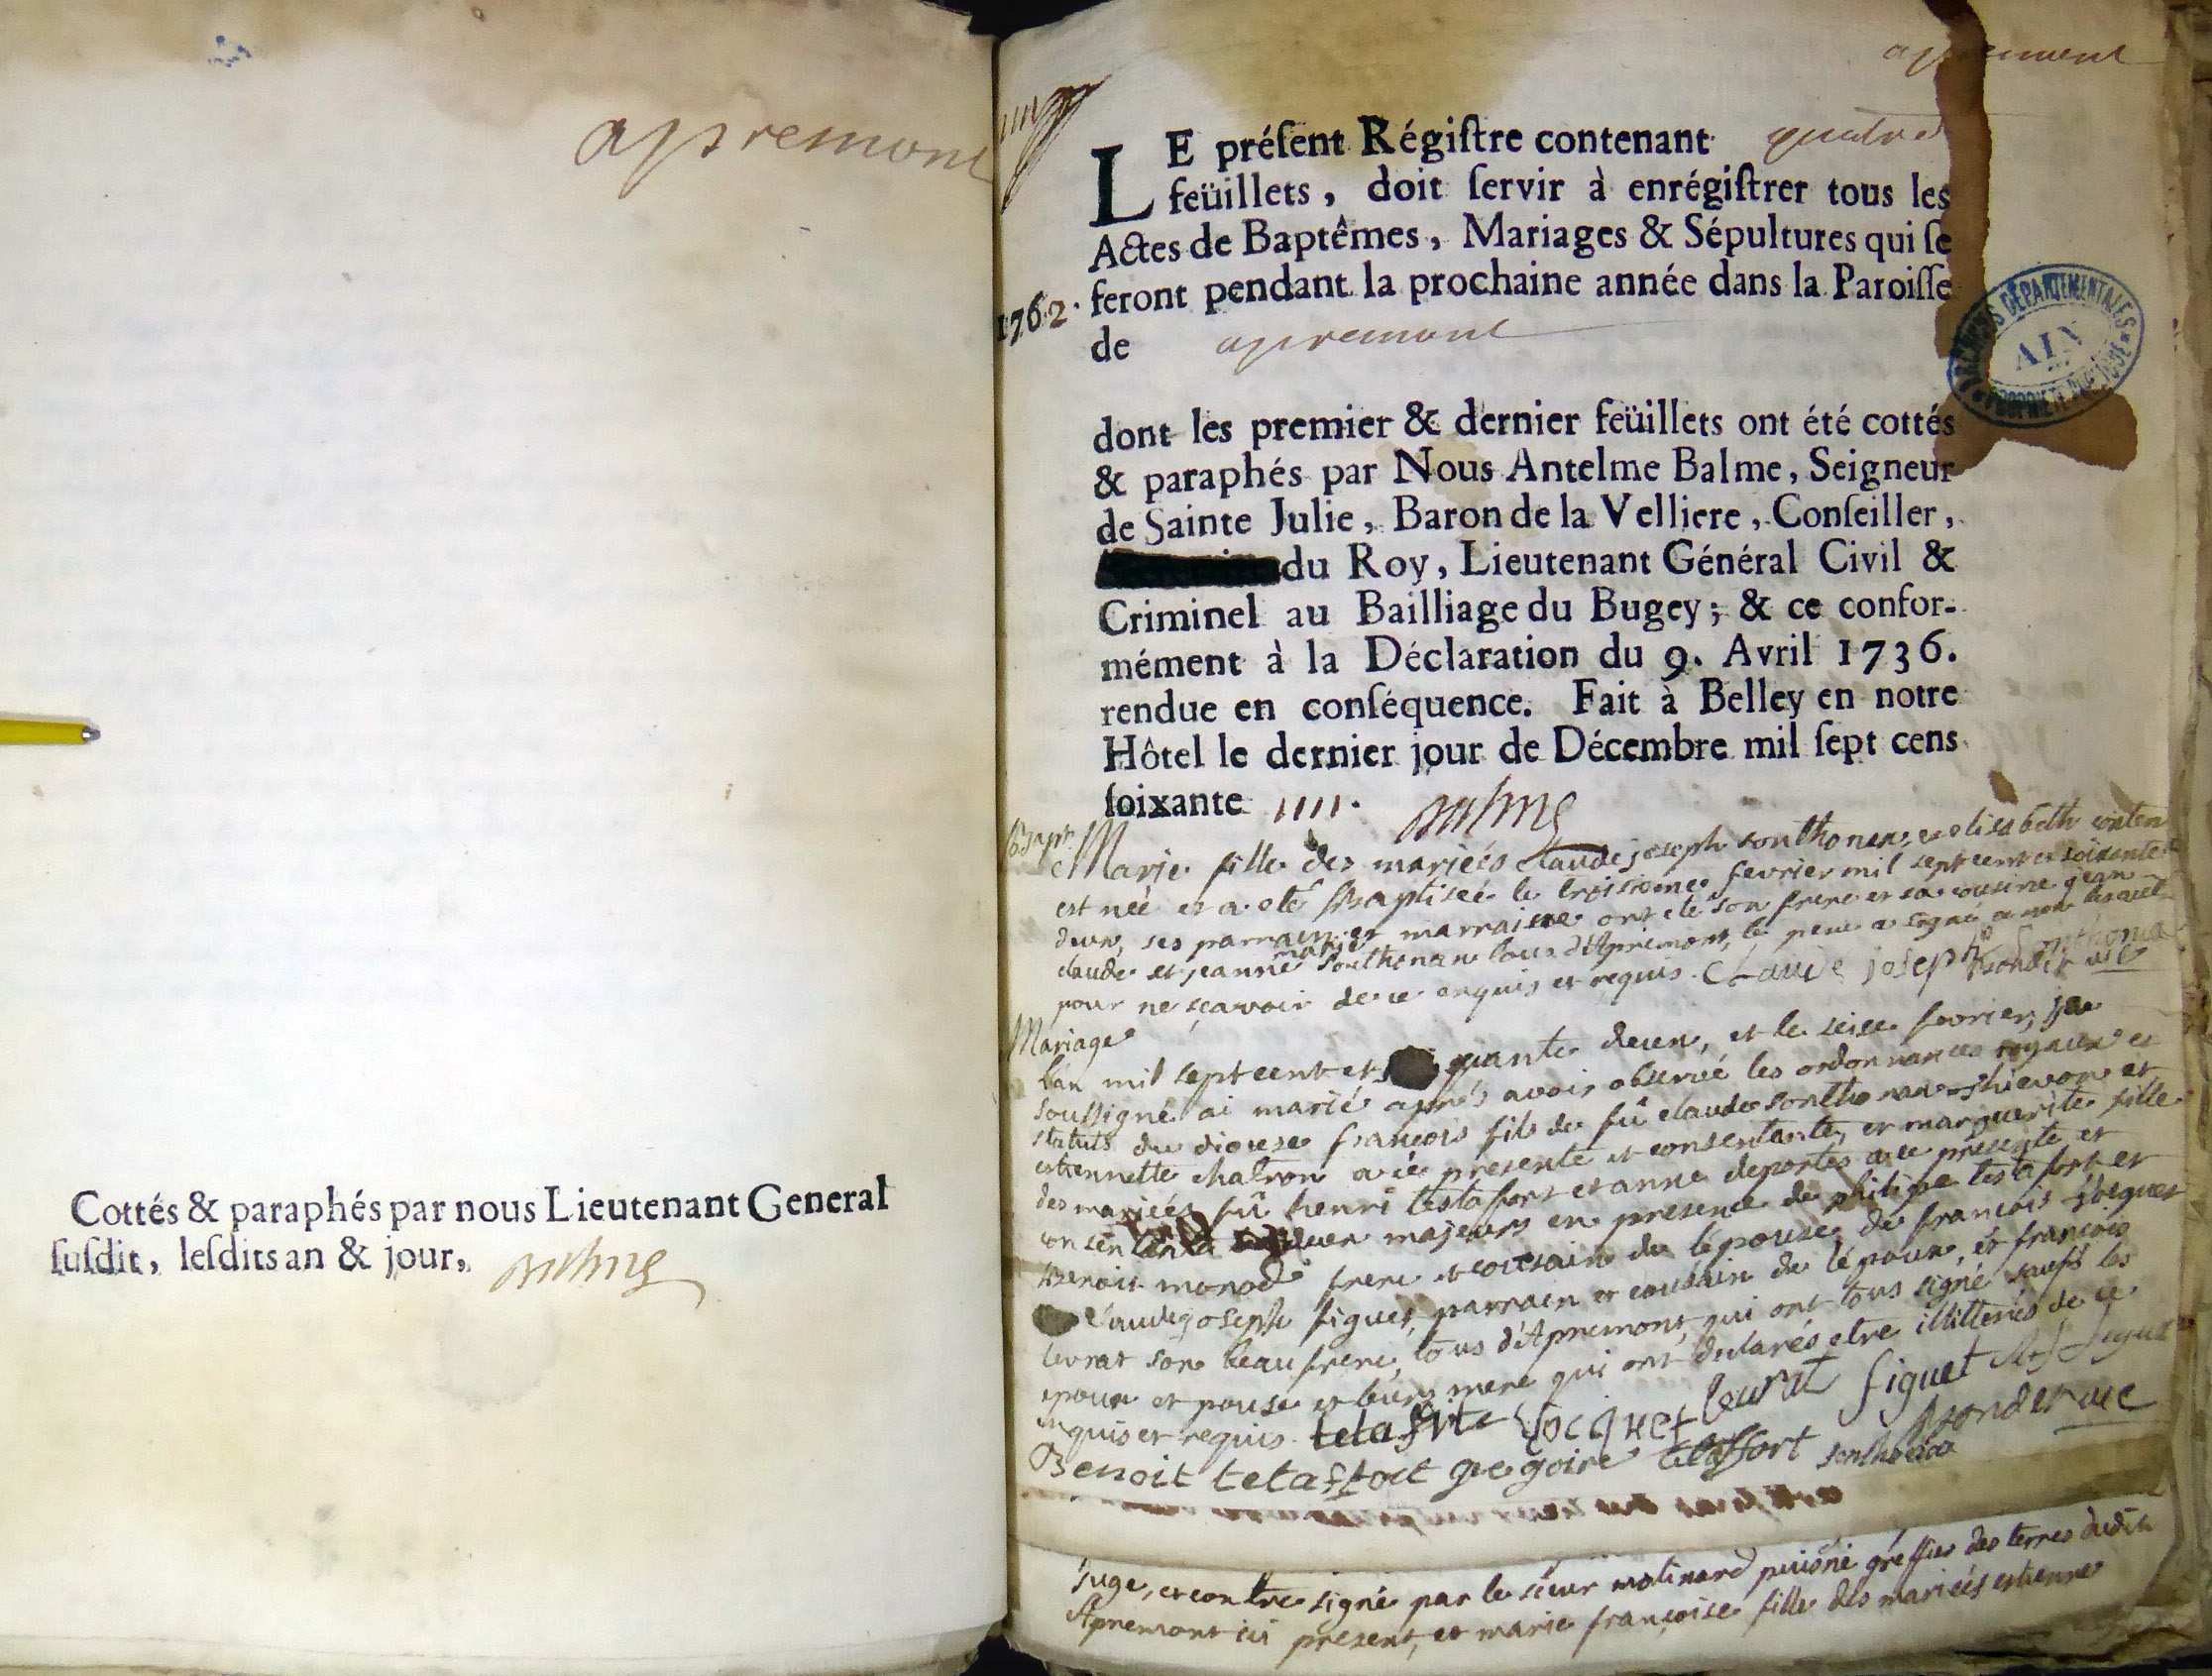 apremont
Cottés & paraphés par nous Lieutenant General
ſuſdit, leſdits an & jour,
apremont
LE préſent Régiſtre contenant quatre
feüillets, doit ſervir à enrégiſtrer tous les
Actes de Baptêmes, Mariages & Sépultures qui ſe
1762. feront pendant la prochaine année dans la Paroiſſe
de apremont
ARCHIVES DÉPARTEMENTALES
AIN
dont les premier & dernier feüillets ont été cottés
& paraphés par Nous Antelme Balme, Seigneur
de Sainte Julie, Baron de la Velliere, Conſeiller,
du Roy, Lieutenant Général Civil &
Criminel au Bailliage du Bugey; & ce confor-
mément à la Déclaration du 9. Avril 1736.
rendue en conſéquence. Fait à Belley en notre
Hôtel le dernier jour de Décembre mil ſept cens
ſoixante
Bapt.
Marie fille des mariées Claude joseph sonthonax, et elisabeth
est née et a oté Baptiseé le troisieme fevrier mil septcent et soixante
deux, ses parrain et marraine ont eté son frere et sa cousine jean
claude et jeanne marie Sonthonax tous d'Apremont, le pere a signé
pour ne sçavoir de ce enquis et requis. Claude joseph Sonthonax
Mariage
l'an mil septcent et quante deux, et le seise fevrier, je
soussigné ai marié aprés avoir observé les ordonnances royaux et
statuts du diocese françois fils de fû claude sonthonax et
estiennette chatron a ce presente et consentante, et marguerite fille
des mariées fû henri testafort et anne deportes a ce presente et
consentante majeurs en presence de philipe testafort et
Benoit monod frere et cousain de l'épouse, de françois jocquet
Claude joseph figuet, parrain et cousain de l'époux, et françois
levrat son beaufrere, tous d'Apremont, qui ont tous signé saufs les
epoux et epouse et leurs mere qui ont declarés etre illitterés de ce
enquis et requis. tetafort Jocquet levrat figuet
Benoit tetaffort gregoire tetaffort sonthonax
juge, et contre signé par le sieur molinard puisné greffier des terres dudit
Apremont ici present, et marie françoise fille des mariées estienne